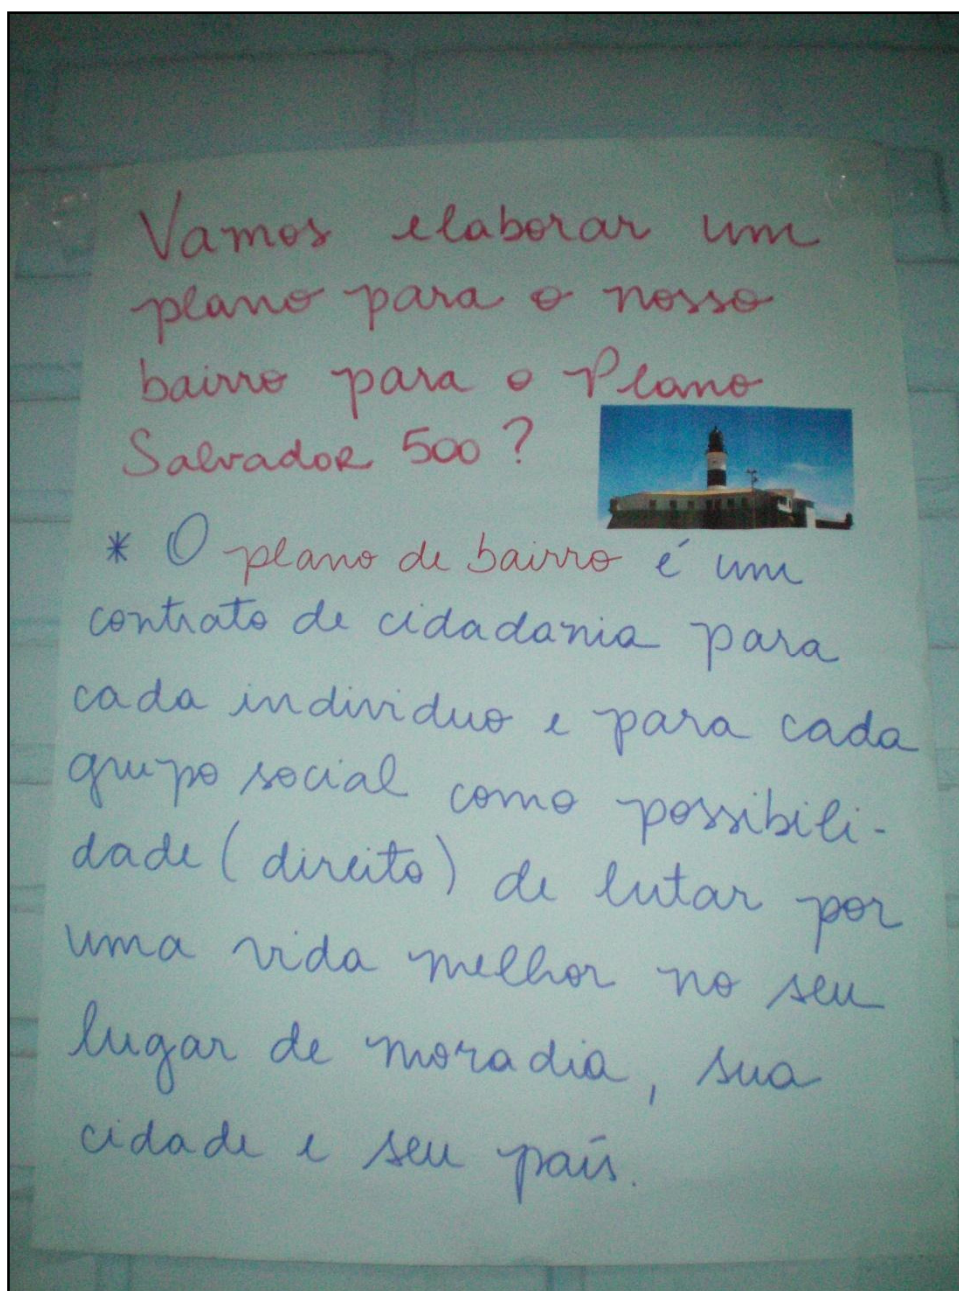 Vamos elaborar um
plano para o nosso
bairro para o Plano
Salvador 500?
* O plano de bairro é um
contrato de cidadania para
cada individuo e para cada
grupo social como possibili-
dade (direito) de lutar por
uma vida melhor no seu
lugar de moradia, sua
cidade e seu país.